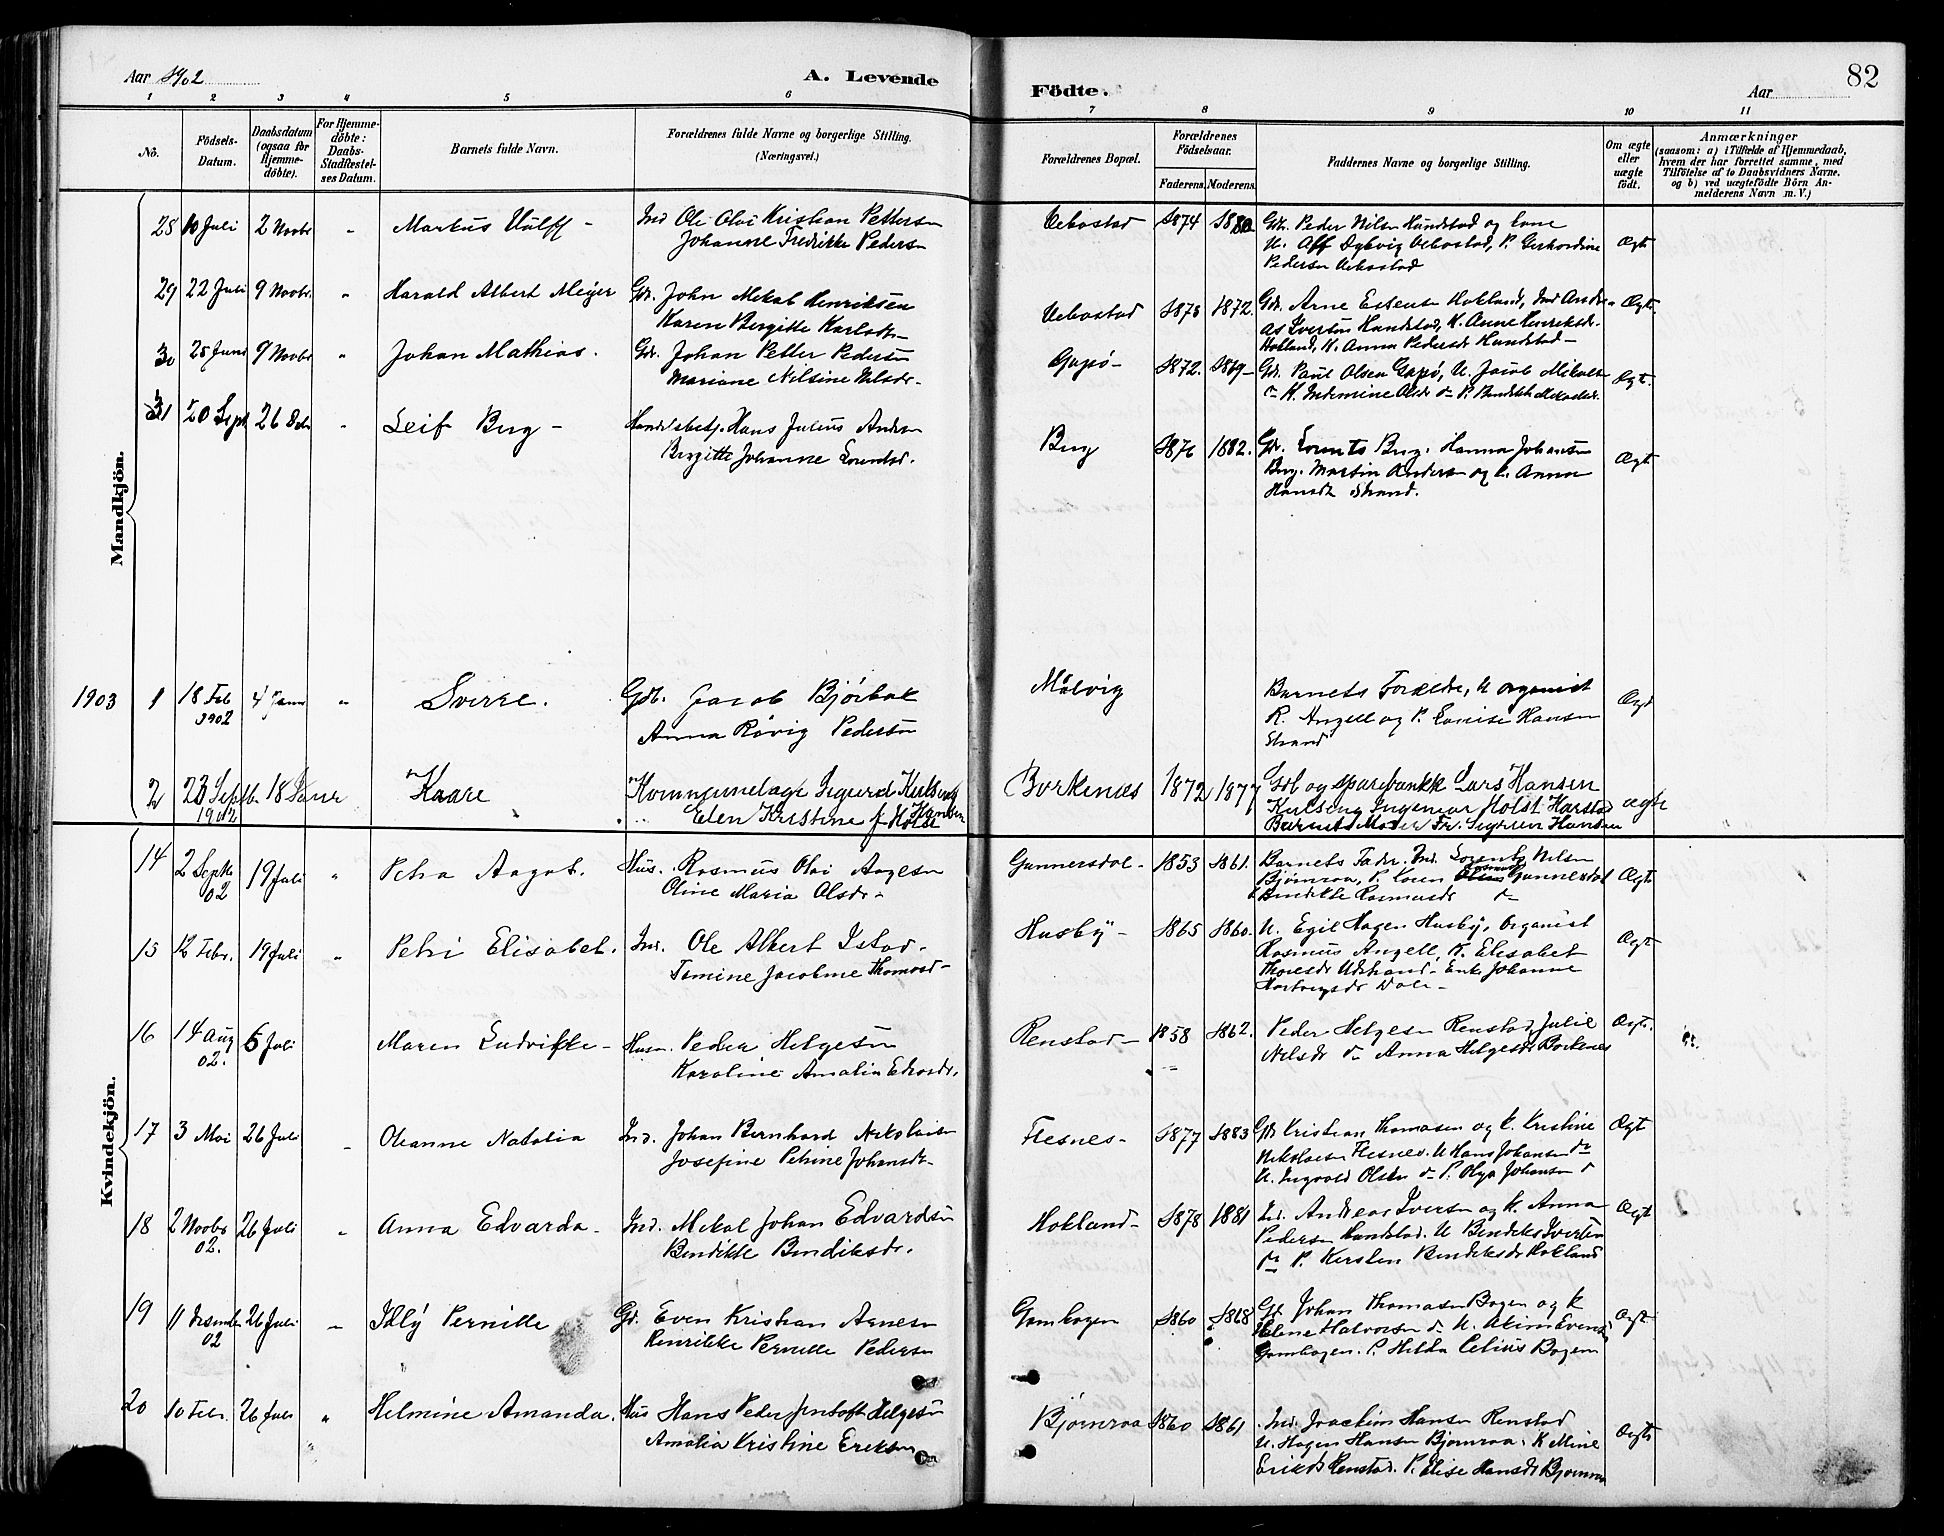 Aar 1902
A. Levende
Födte.
82
Aar
1 2 3 4 5 6 7 8 9 10 11
No.
Födsels-Datum.
Daabsdatum (ogsaa for Hjemmedöbte).
For Hjemmedöbte: Daabs-Stadfæstelses Datum.
Barnets fulde Navn.
Forældrenes fulde Navne og borgerlige Stilling. (Næringsvei.)
Forældrenes Bopæl.
Forældrenes Födselsaar.
Faderens. Moderens.
Faddernes Navne og borgerlige Stilling.
Om ægte eller uægte födt.
Anmærkninger
(saasom: a) i Tilfælde af Hjemmedaab, hvem der har forrettet samme, med Tilföielse af to Daabsvidners Navne. og b) ved uægtefödte Börn Anmelderens Navn m. V.)
Mandkjön.
28 10 Juli 2 Novbr " Markus Vulff - Ind Ole Olai Kristian Pettersen
Johanne Fredrikke Pedersen
Vebostad 1874 1880 Gdr. Peder Nilsen Hundstad og Lone
U. Aff Dybvig Vebostad, P. Gerhardine
Pedersen Vebostad
Ægte
29 22 Juli 9 Novbr. " Harald Albert Meyer Gdr. John Mekal Henriksen
Karen Bergitte Karlsdr-
Vebostad 1873 1872. Gdr. Arne Estensen Hokland, Ind Andre-
as Ivertsen Hundstad, K. Anne Henriksdr.
Hokland, K. Anna Pedersdr Hundstad-
Ægte
30 25 Juni 9 Novbr " Johan Mathias. Gdr. Johan Petter Pedersen
Mariane Nilsine Nilsdr.
Gapø- 1872. 1869- Gdr. Paul Olsen Gapø, U. Jacob Mikals
Ægt.
31 20 Sept. 26 Dcbr " Leif Berg - Handelsbetj. Hans Julius Andersen
Bergitte Johanne Lorentsd.
Berg 1876 1882. Gdr. Lorents Berg. Hanna Johansen
Berg. Martin Andersen og k. Anna
Hansdr Strand.
Ægt
1903 1 18 Feb 1902 4 Janr " Sverre. Gdb. Jacob Bjørbak
Anna Røvig Pedersen
Målvig
Barnets Forældre, U organist
R. Angell og P. Louise Hansen
Strand
Ægt
2 23 Septbr. 1902 18 Janr " Kaare Kommunelæge Sigurd Kulseng Hansen
Elen Kristine f. Holst
Borkenes 1872 1877 Gdb og sparebankk Lars Hansen
Kulseng Ingeniør Holst Harstad
Barnets Moder Fr. Sigrun Hansen
ægte
Kvindekjön.
14 2 Septbr 02 19 Juli " Petra Aagot. Hus. Rasmus Olai Aagesen
Oline Maria Olsdr-
Gunnersdal- 1853 1861. Barnets Fader. Ind. Lorents Nilsen
Bjørnraa, P. Karen Gunnersdal
Bendikte Rasmusdr
Ægte
15 12 Febr. 19 Juli " Petri Elisabet. Ind. Ole Albert Istad.
Tomine Jacobine Thomasd-
Husby- 1865 1860. U. Egil Hagen Husby, Organist
Rasmus Angell, P. Elisabet
Thoresdr Udstrand- Enke Johanne
Hartvigsdr Dale-
Ægt
16 14 Aug 02. 5 Juli Maren Ludvikke- Husm. Peder Helgesen
Karoline Amalia Edvardsdr.
Renstad- 1858 1862. Peder Helgesen Renstad, Julie
Nilsdr dr Anna Helgesdr Borkenes
Ægt.
17 3 Mai 26 Juli " Oleanne Natalia Ind. Johan Bernhard Nikolaisen
Josefine Petrine Johansdr-
Flesnes- 1877 1883 Gdr Kristian Thomasen og k. Kristine
Nikolaisen Flesnes. U Hans Johansen do
U. Ingvald Olsen do P. Olga Johansen do
Ægt
18 2 Novbr 02. 26 Juli " Anna Edvarda- Ind. Mekal Johan Edvardsen
Bendikte Bendiksdr.
Hokland- 1878 1881 Ind. Andreas Iversen og k. Anna
Pedersen Hundstad. U Bendiks Ivertsen
do P. Kersten Bendiksdr Hokland
Ægt
19 11 Desember 02 26 Juli " Idly Pernille Gd. Even Kristian Agnesen
Henrikke Pernille Pedersen
Gambogen 1860 1868 Gd. Johan Thomasen Bogen og k
Helene Halvorsen do U. Akim Evensen
Gambogen. P. Hilda Celius Bogen
Ægt
20 10 Febr. 26 Juli " Helmine Amanda. Hus Hans Peder Jentoft Helgesen
Amalia Kristine Eriksen
Bjørnraa 1860 1861 Ind. Joachim Hansen Renstad
U. Hagen Hansen Bjørnraa. K Mine
Eriksdr Renstad. P. Elise Hansdr Bjørnraa
Ægte